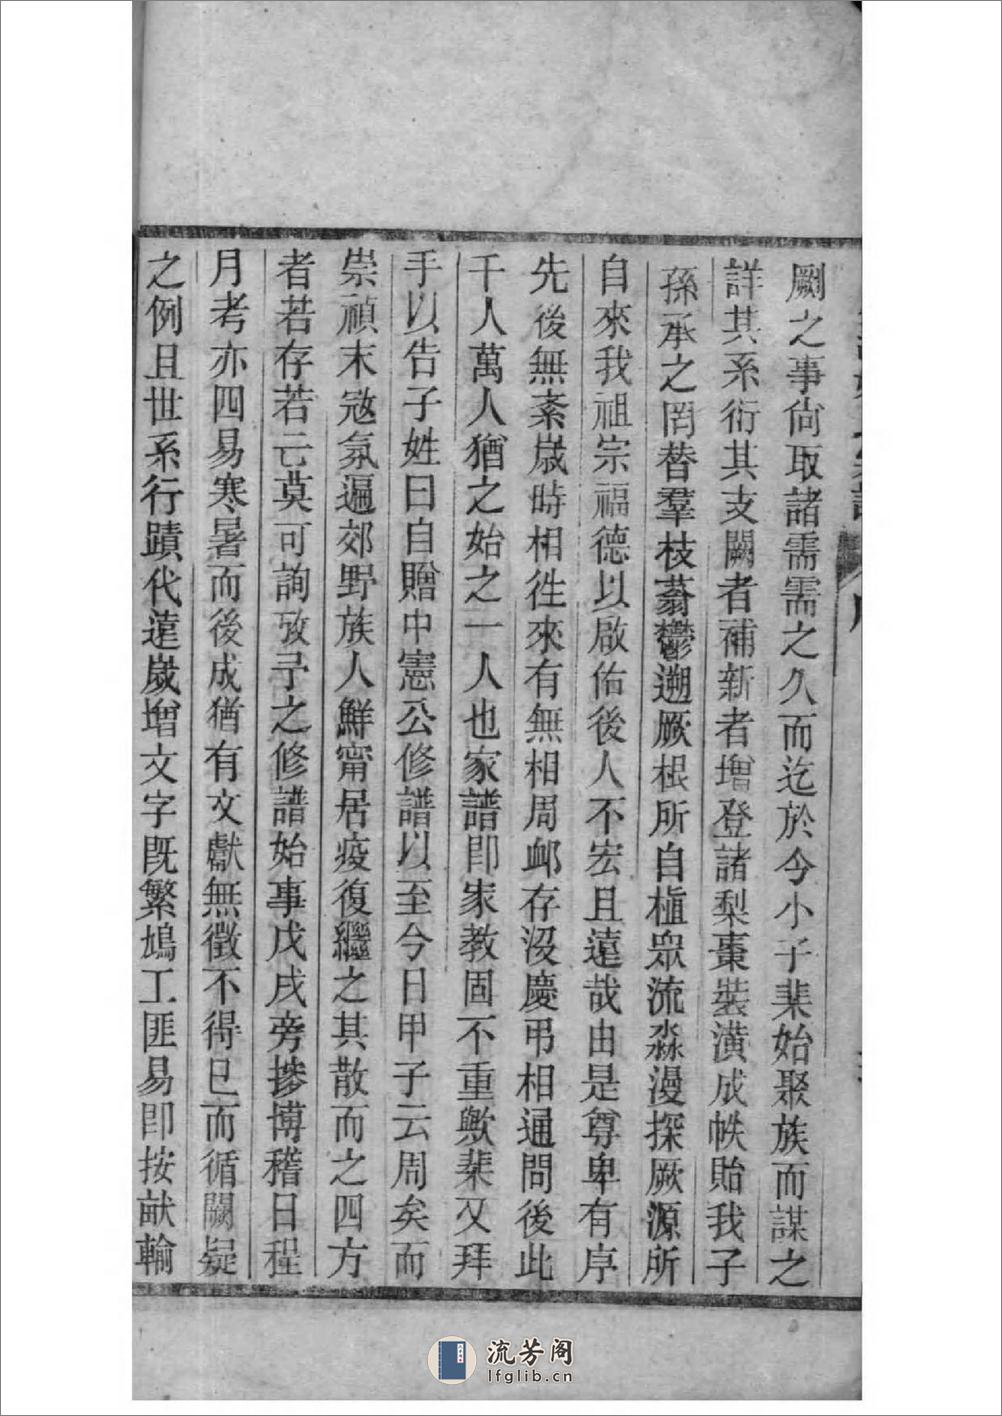 劂之事尙取諸需需之久而迄於今小子棐始聚族而謀之
詳其系衍其支闕者補新者增登諸梨棗裝潢成帙貽我子
孫承之罔替羣枝蓊鬱遡厥根所自植眾流淼漫探厥源所
自來我祖宗福德以啟佑後人不宏且遠哉由是尊卑有序
先後無紊歲時相徃來有無相周䘏存沒慶弔相通問後此
千人萬人猶之始之一人也家譜卽家教固不重歟棐又拜
手以告子姓曰自贈中憲公修譜以至今日甲子云周矣而
崇禎末寇氛遍郊野族人鮮甯居疫復繼之其散而之四方
者若存若亡莫可詢攷予之修譜始事戊戌旁摻博稽日程
月考亦四易寒暑而後成猶有文獻無徵不得已而循闕疑
之例且世系行蹟代遠歲增文字旣繁鳩工匪易卽按畝輸
流芳阁
lfglib.cn